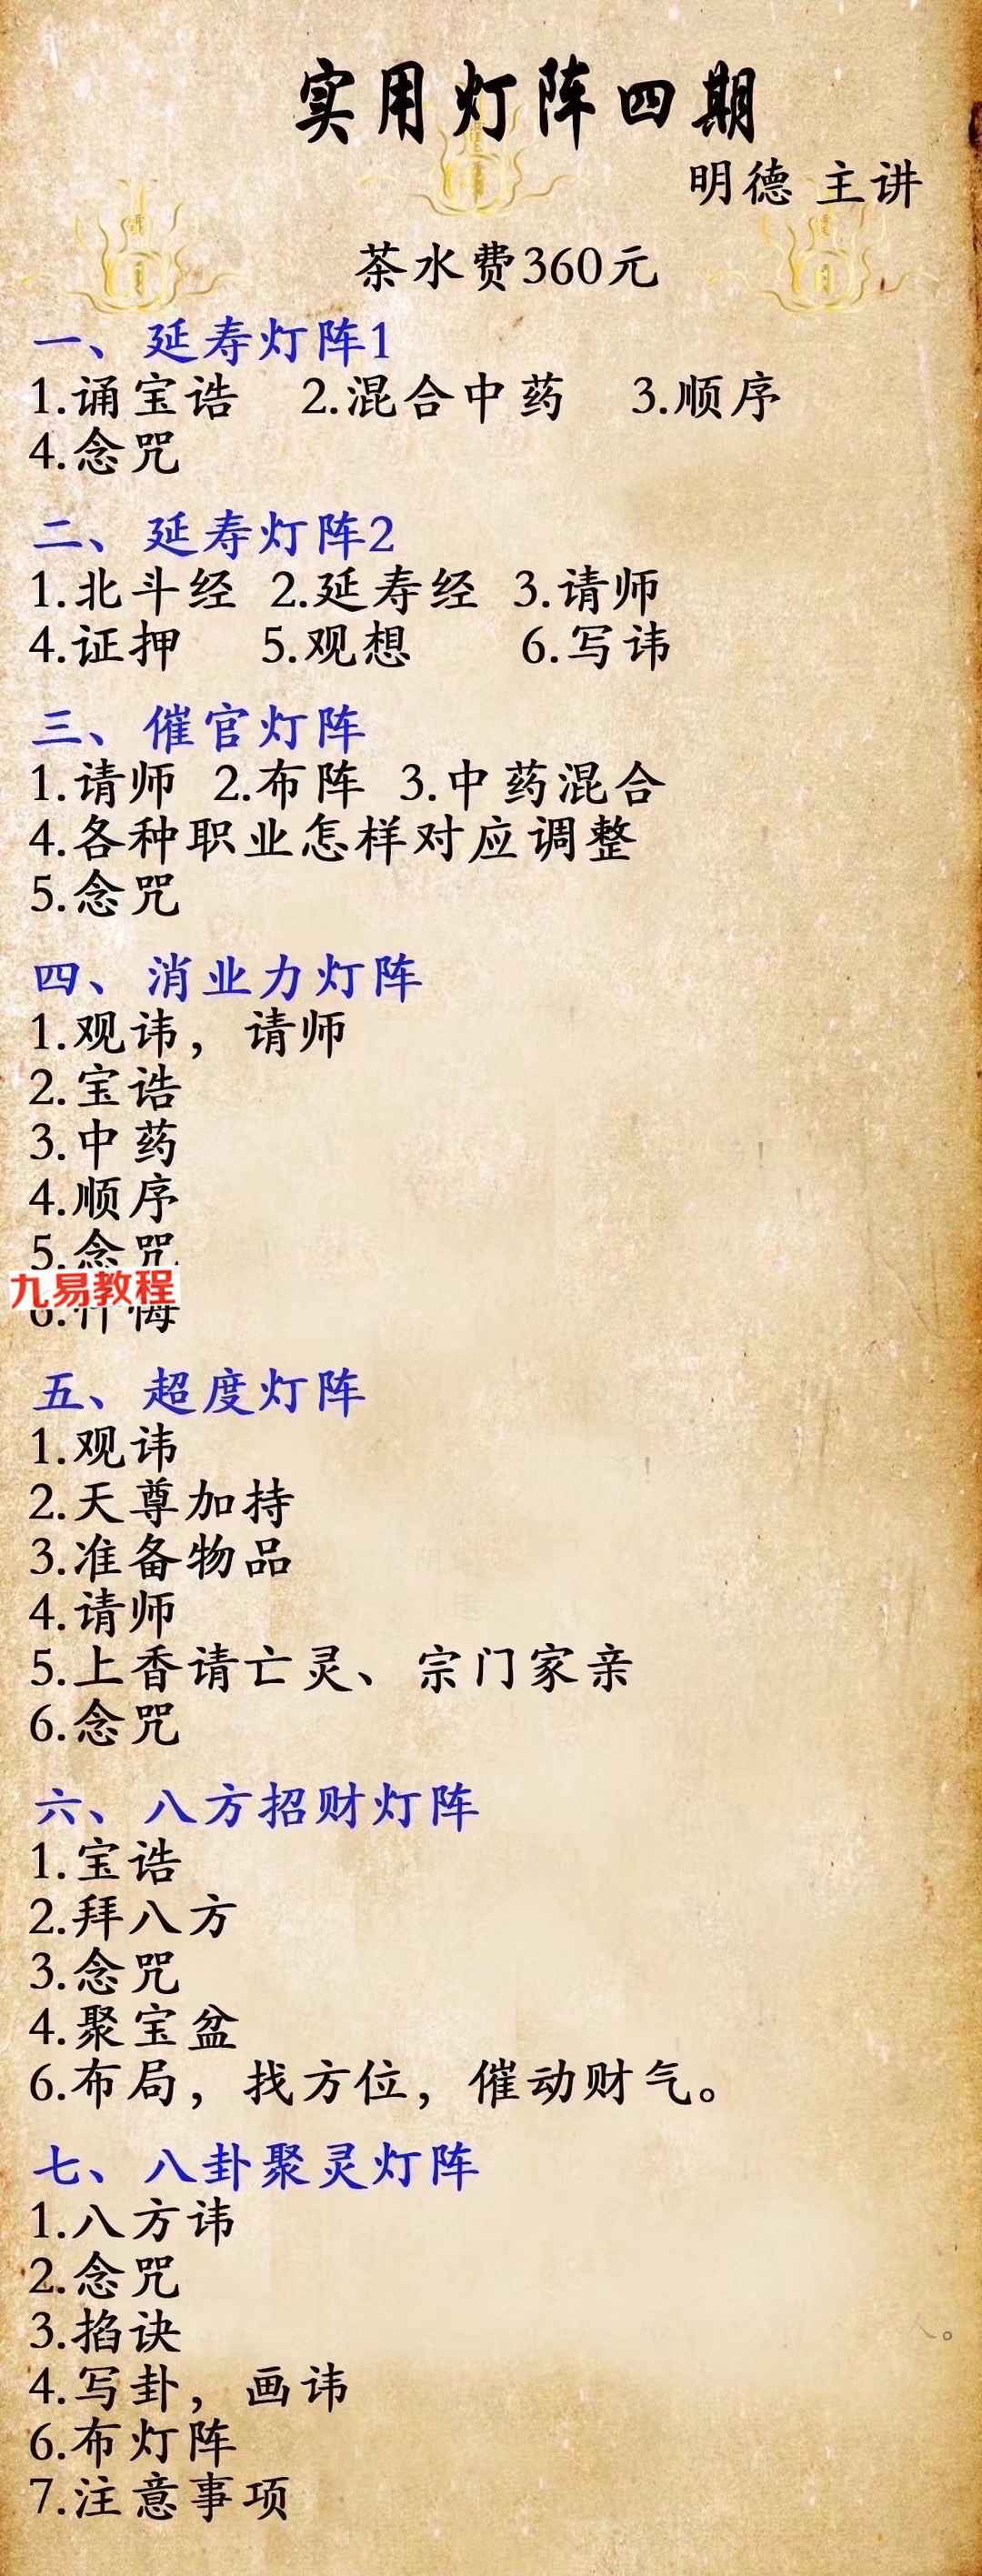 实用灯阵四期
明德 主讲
茶水费360元
一、延寿灯阵1
1.诵宝诰 2.混合中药 3.顺序
4.念咒
二、延寿灯阵2
1.北斗经 2.延寿经 3.请师
4.证押 5.观想 6.写讳
三、催官灯阵
1.请师 2.布阵 3.中药混合
4.各种职业怎样对应调整
5.念咒
四、消业力灯阵
1.观讳，请师
2.宝诰
3.中药
4.顺序
5.念咒
九易教程
6.忏悔
五、超度灯阵
1.观讳
2.天尊加持
3.准备物品
4.请师
5.上香请亡灵、宗门家亲
6.念咒
六、八方招财灯阵
1.宝诰
2.拜八方
3.念咒
4.聚宝盆
6.布局，找方位，催动财气。
七、八卦聚灵灯阵
1.八方讳
2.念咒
3.掐诀
4.写卦，画讳
6.布灯阵
7.注意事项